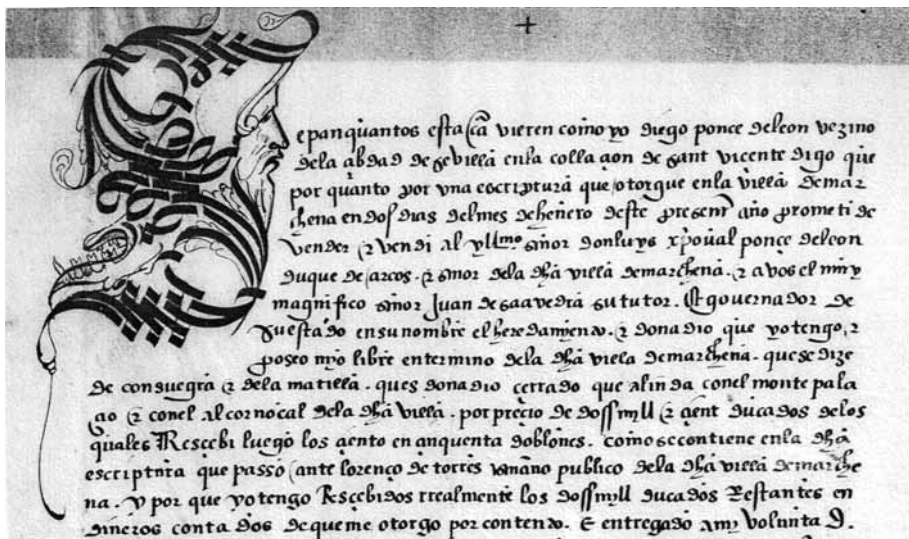 Sepan quantos esta cā vieren como yo diego ponce deleon vezino
dela çibdad de sevilla enla collaçion de sant viçente digo que
por quanto por vna escriptura que otorgue enla villa demar
chena en dos dias delmes de henero deste present año prometi de
vender & vendi al yllmo señor don luys xpoual ponce deleon
duque de arcos. & señor dela dha villa demarchena. & a vos el muy
magnifico señor Juan de saavedra su tutor. Et gouernador de
su estado en su nombre el heredamiento. & donadio que yo tengo, &
poseo myo libre en termino dela dha villa demarchena. que se dize
de consuegra & dela matilla. ques donadio cerrado que alinda conel monte pala
çio & conel alcornocal dela dha villa. por preçio de dos mill & çient ducados delos
quales Resçebi luego los çiento en çinquenta doblones. como se contiene enla dha
escriptura que passo ante lorenço de torres publico dela dha villa demarche
na. y por que yo tengo Resçebidos rrealmente los dos mill ducados Restantes en
dineros contados de que me otorgo por contento. E entregado a my voluntad.